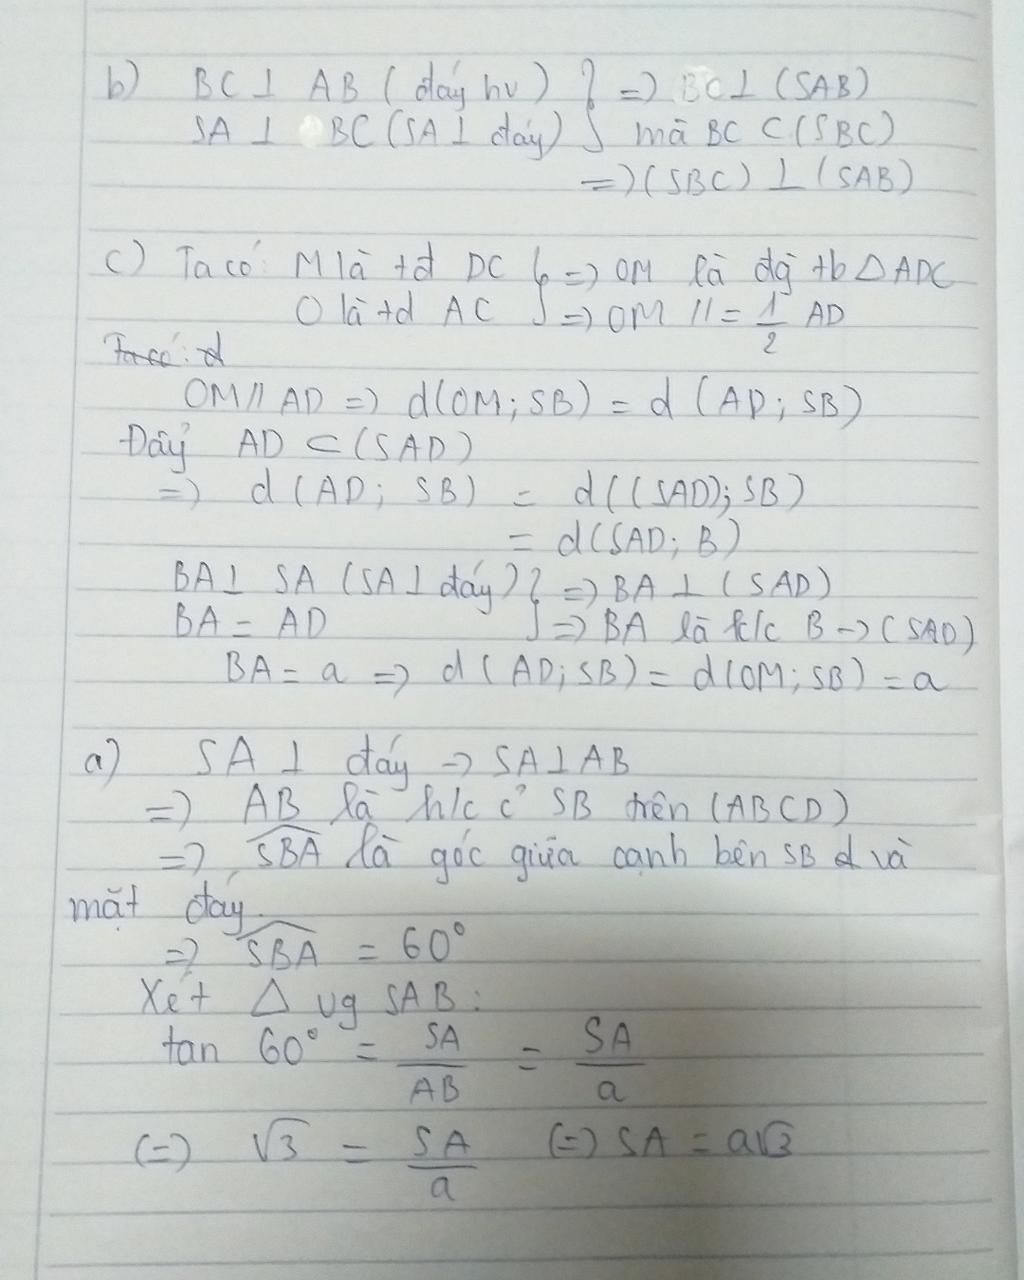 b) BC ⊥ AB (đáy hv) } => BC ⊥ (SAB)
SA ⊥ BC (SA ⊥ đáy) } mà BC ⊂ (SBC)
=> (SBC) ⊥ (SAB)
c) Ta có: M là tđ DC } => OM là đg tb △ ADC
O là tđ AC } => OM // = 1/2 AD
Ta có: d
OM // AD => d(OM; SB) = d(AD; SB)
Đấy AD ⊂ (SAD)
=> d(AD; SB) = d((SAD); SB)
= d(SAD; B)
BA ⊥ SA (SA ⊥ đáy) } => BA ⊥ (SAD)
BA = AD } => BA là k/c B -> (SAD)
BA = a => d(AD; SB) = d(OM; SB) = a
a) SA ⊥ đáy -> SA ⊥ AB
=> AB là h/c c' SB trên (ABCD)
=> SBA là góc giữa cạnh bên SB d và
mặt đáy.
=> SBA = 60°
Xét △ vg SAB:
tan 60° = SA/AB = SA/a
(=) √3 = SA/a (=) SA = a√3